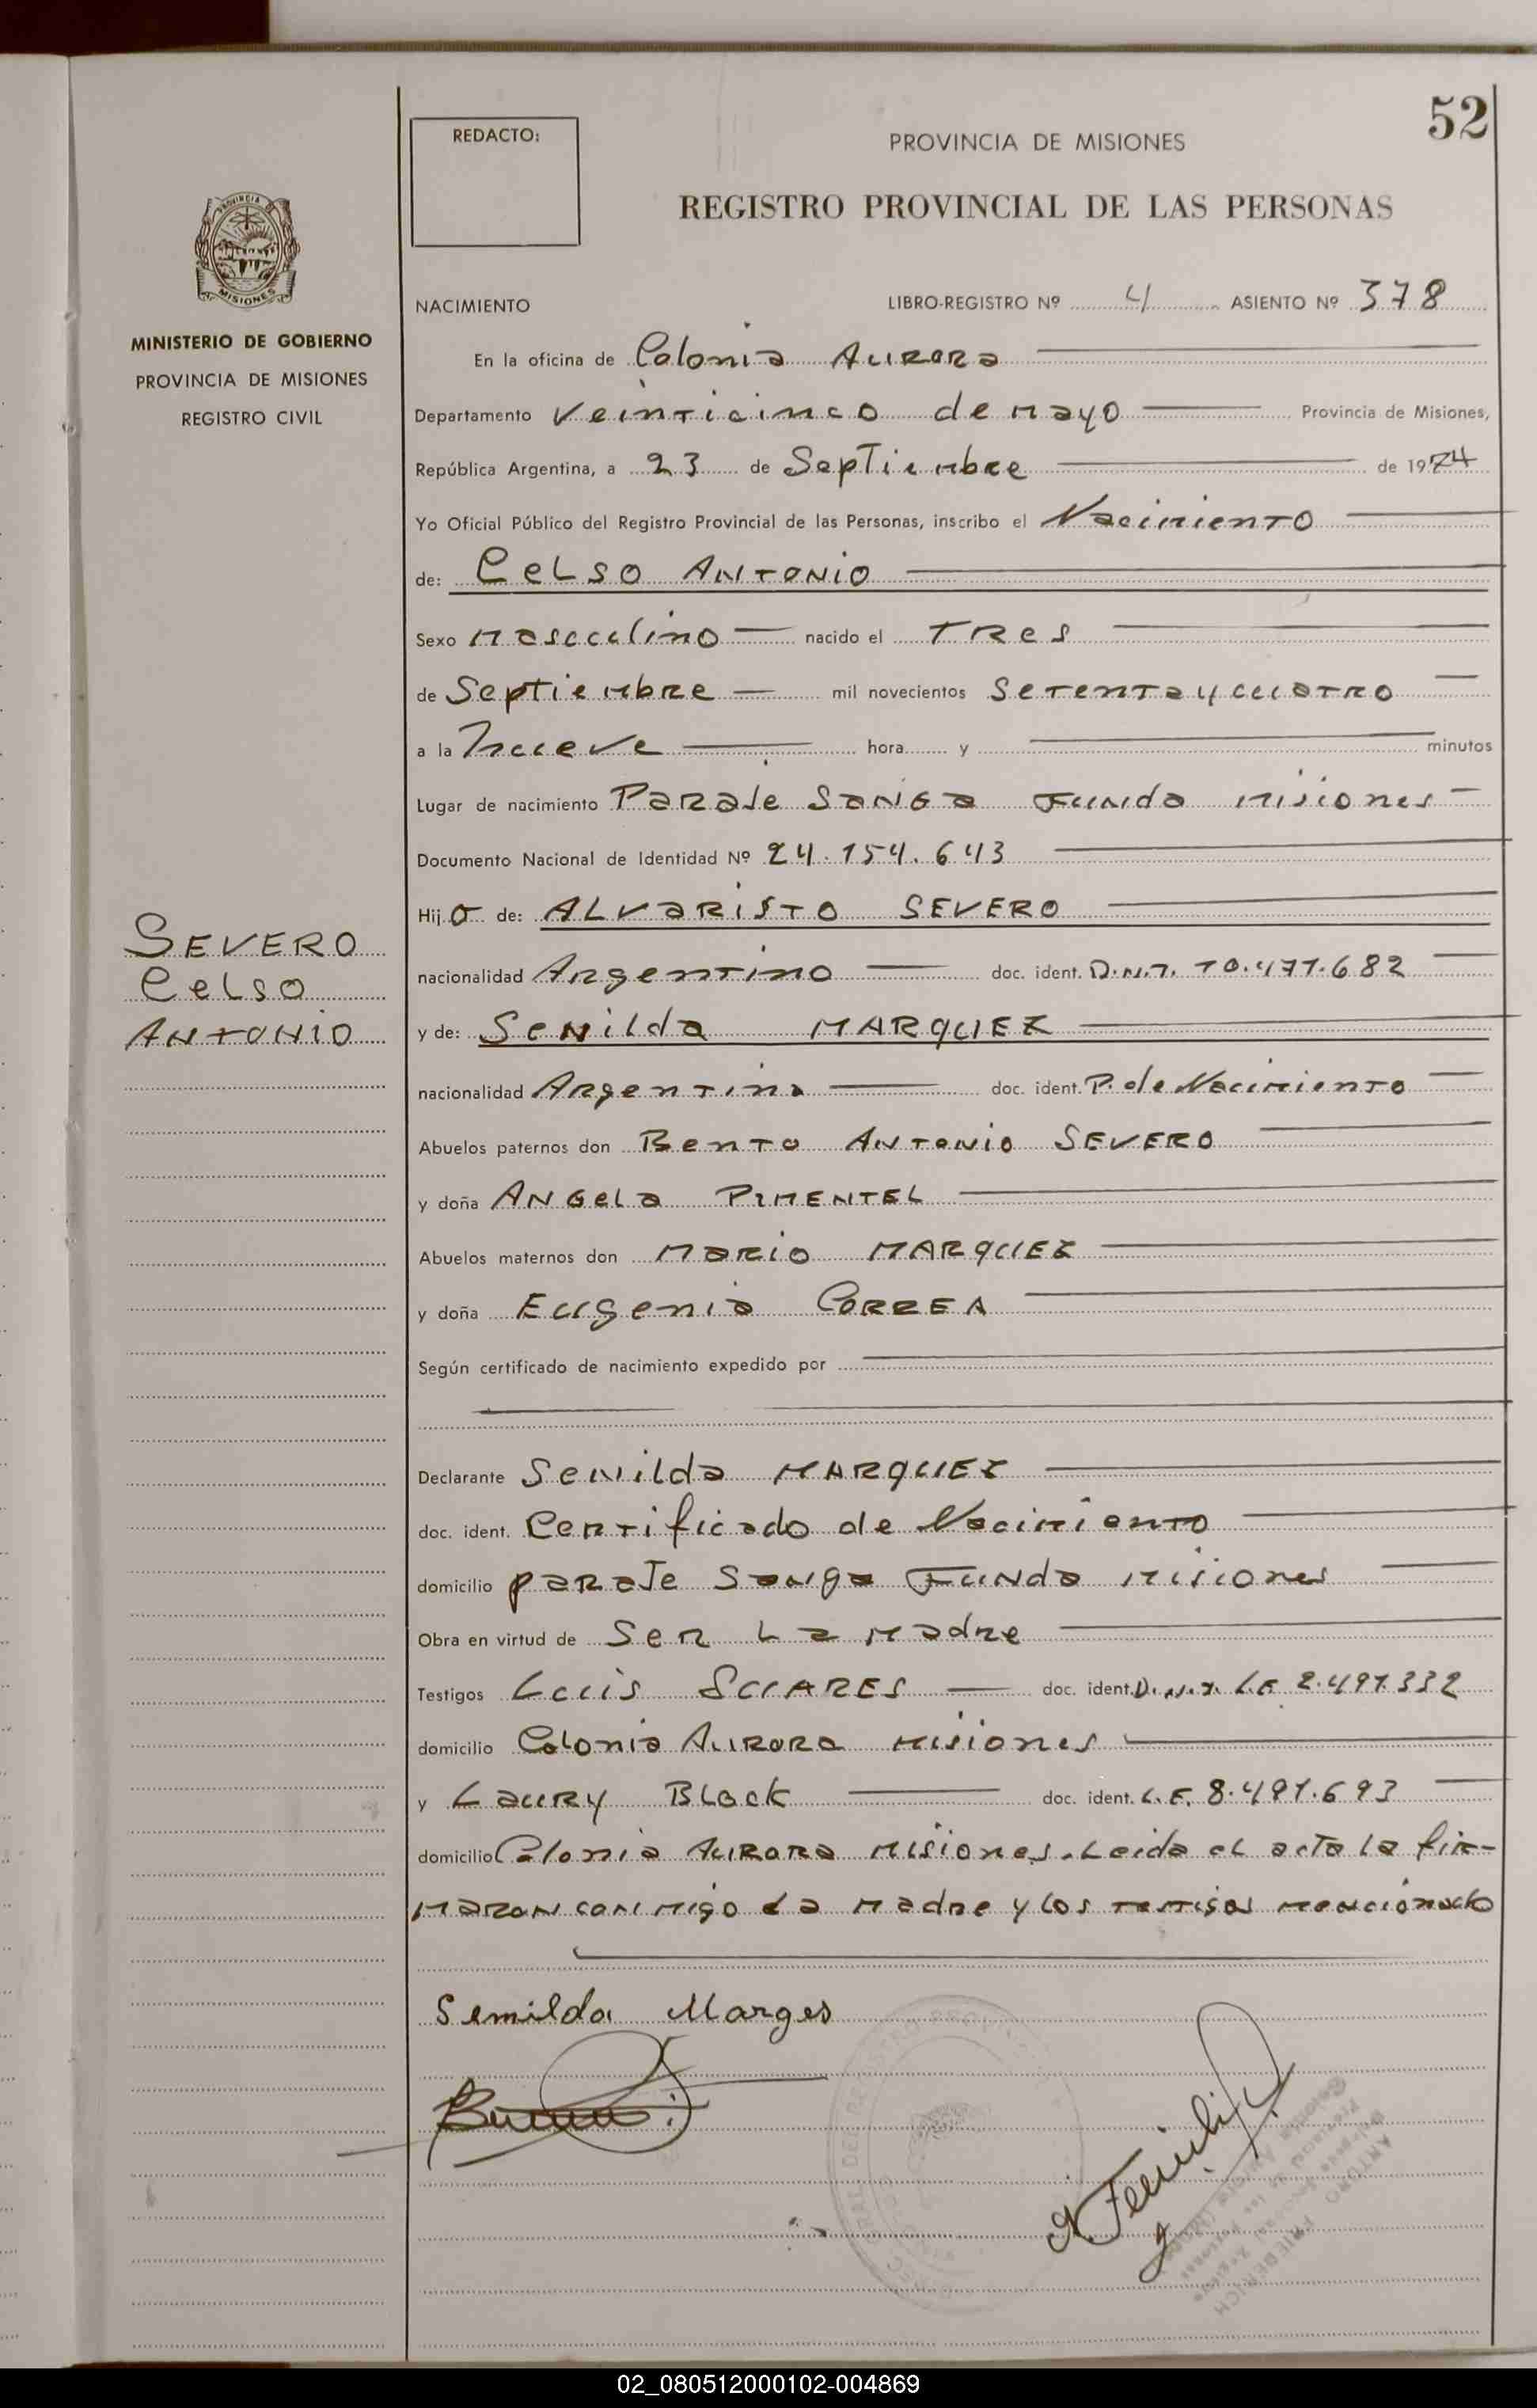 52
REDACTO:
PROVINCIA DE MISIONES
REGISTRO PROVINCIAL DE LAS PERSONAS
PROVINCIA DE
MISIONES
MINISTERIO DE GOBIERNO
PROVINCIA DE MISIONES
REGISTRO CIVIL
NACIMIENTO LIBRO-REGISTRO Nº 4 ASIENTO Nº 378
En la oficina de Colonia Aurora
Departamento Veinticinco de mayo Provincia de Misiones,
República Argentina, a 23 de Septiembre de 1974
Yo Oficial Público del Registro Provincial de las Personas, inscribo el Nacimiento
de: Celso Antonio
Sexo masculino nacido el Tres
de Septiembre mil novecientos Setenta y cuatro
a la Nueve hora y minutos
Lugar de nacimiento Paraje Sanga Funda misiones
Documento Nacional de Identidad Nº 24.154.643
Hijo de: ALVARISTO SEVERO
SEVERO
Celso
Antonio
nacionalidad Argentino doc. ident. D.N.I. 10.477.682
y de: Senilda MARQUEZ
nacionalidad Argentina doc. ident. P. de Nacimiento
Abuelos paternos don Bento Antonio SEVERO
y doña Angela PIMENTEL
Abuelos maternos don Mario MARQUEZ
y doña Eugenia CORREA
Según certificado de nacimiento expedido por
Declarante Senilda MARQUEZ
doc. ident. Certificado de Nacimiento
domicilio paraje Sanga Funda misiones
Obra en virtud de Ser La Madre
Testigos Luis SUARES doc. ident. D.N.I. L.E 2.497.332
domicilio Colonia Aurora misiones
y Laury Black doc. ident. L.E. 8.491.693
domicilio Colonia Aurora misiones. Leida el acta la fir-
maron conmigo la madre y los testigos mencionado
Semilda Marges
ARTURO FRIEDERICH
02_080512000102-004869